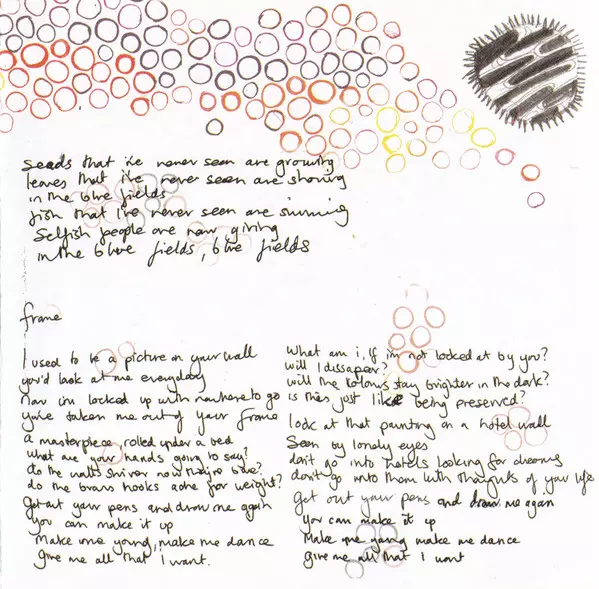 seeds that i've never seen are growing
leaves that i've never seen are showing
in the blue fields
fish that i've never seen are swimming
Selfish people are now giving
in the blue fields, blue fields
frame
I used to be a picture on your wall
you'd look at me everyday
Now i'm locked up with nowhere to go
you've taken me out of your frame
a masterpiece rolled under a bed
what are your hands going to say?
do the walls shiver now they're bare?
do the brass hooks ache for weight?
Get out your pens and draw me again
You can make it up
Make me young, make me dance
give me all that I want.
What am i, If i'm not looked at by you?
will I dissapear?
will the colours stay brighter in the dark?
is this just like being preserved?
look at that painting on a hotel wall
Seen by lonely eyes
don't go into hotels looking for dreams
don't go into them with thoughts of your life
Get out your pens and draw me again
You can make it up
Make me young make me dance
give me all that I want